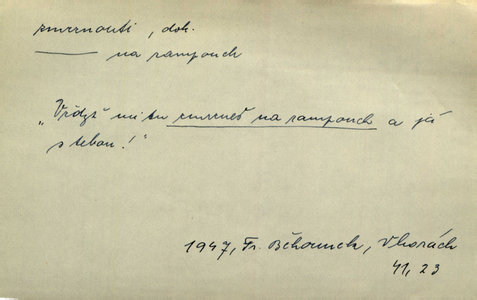 zmrznouti, dok.
——— na rampouch
„Vždyť mi tu zmrzneš na rampouch a já
s tebou!“
1947, Fr. Běhounek, V horách
41, 23